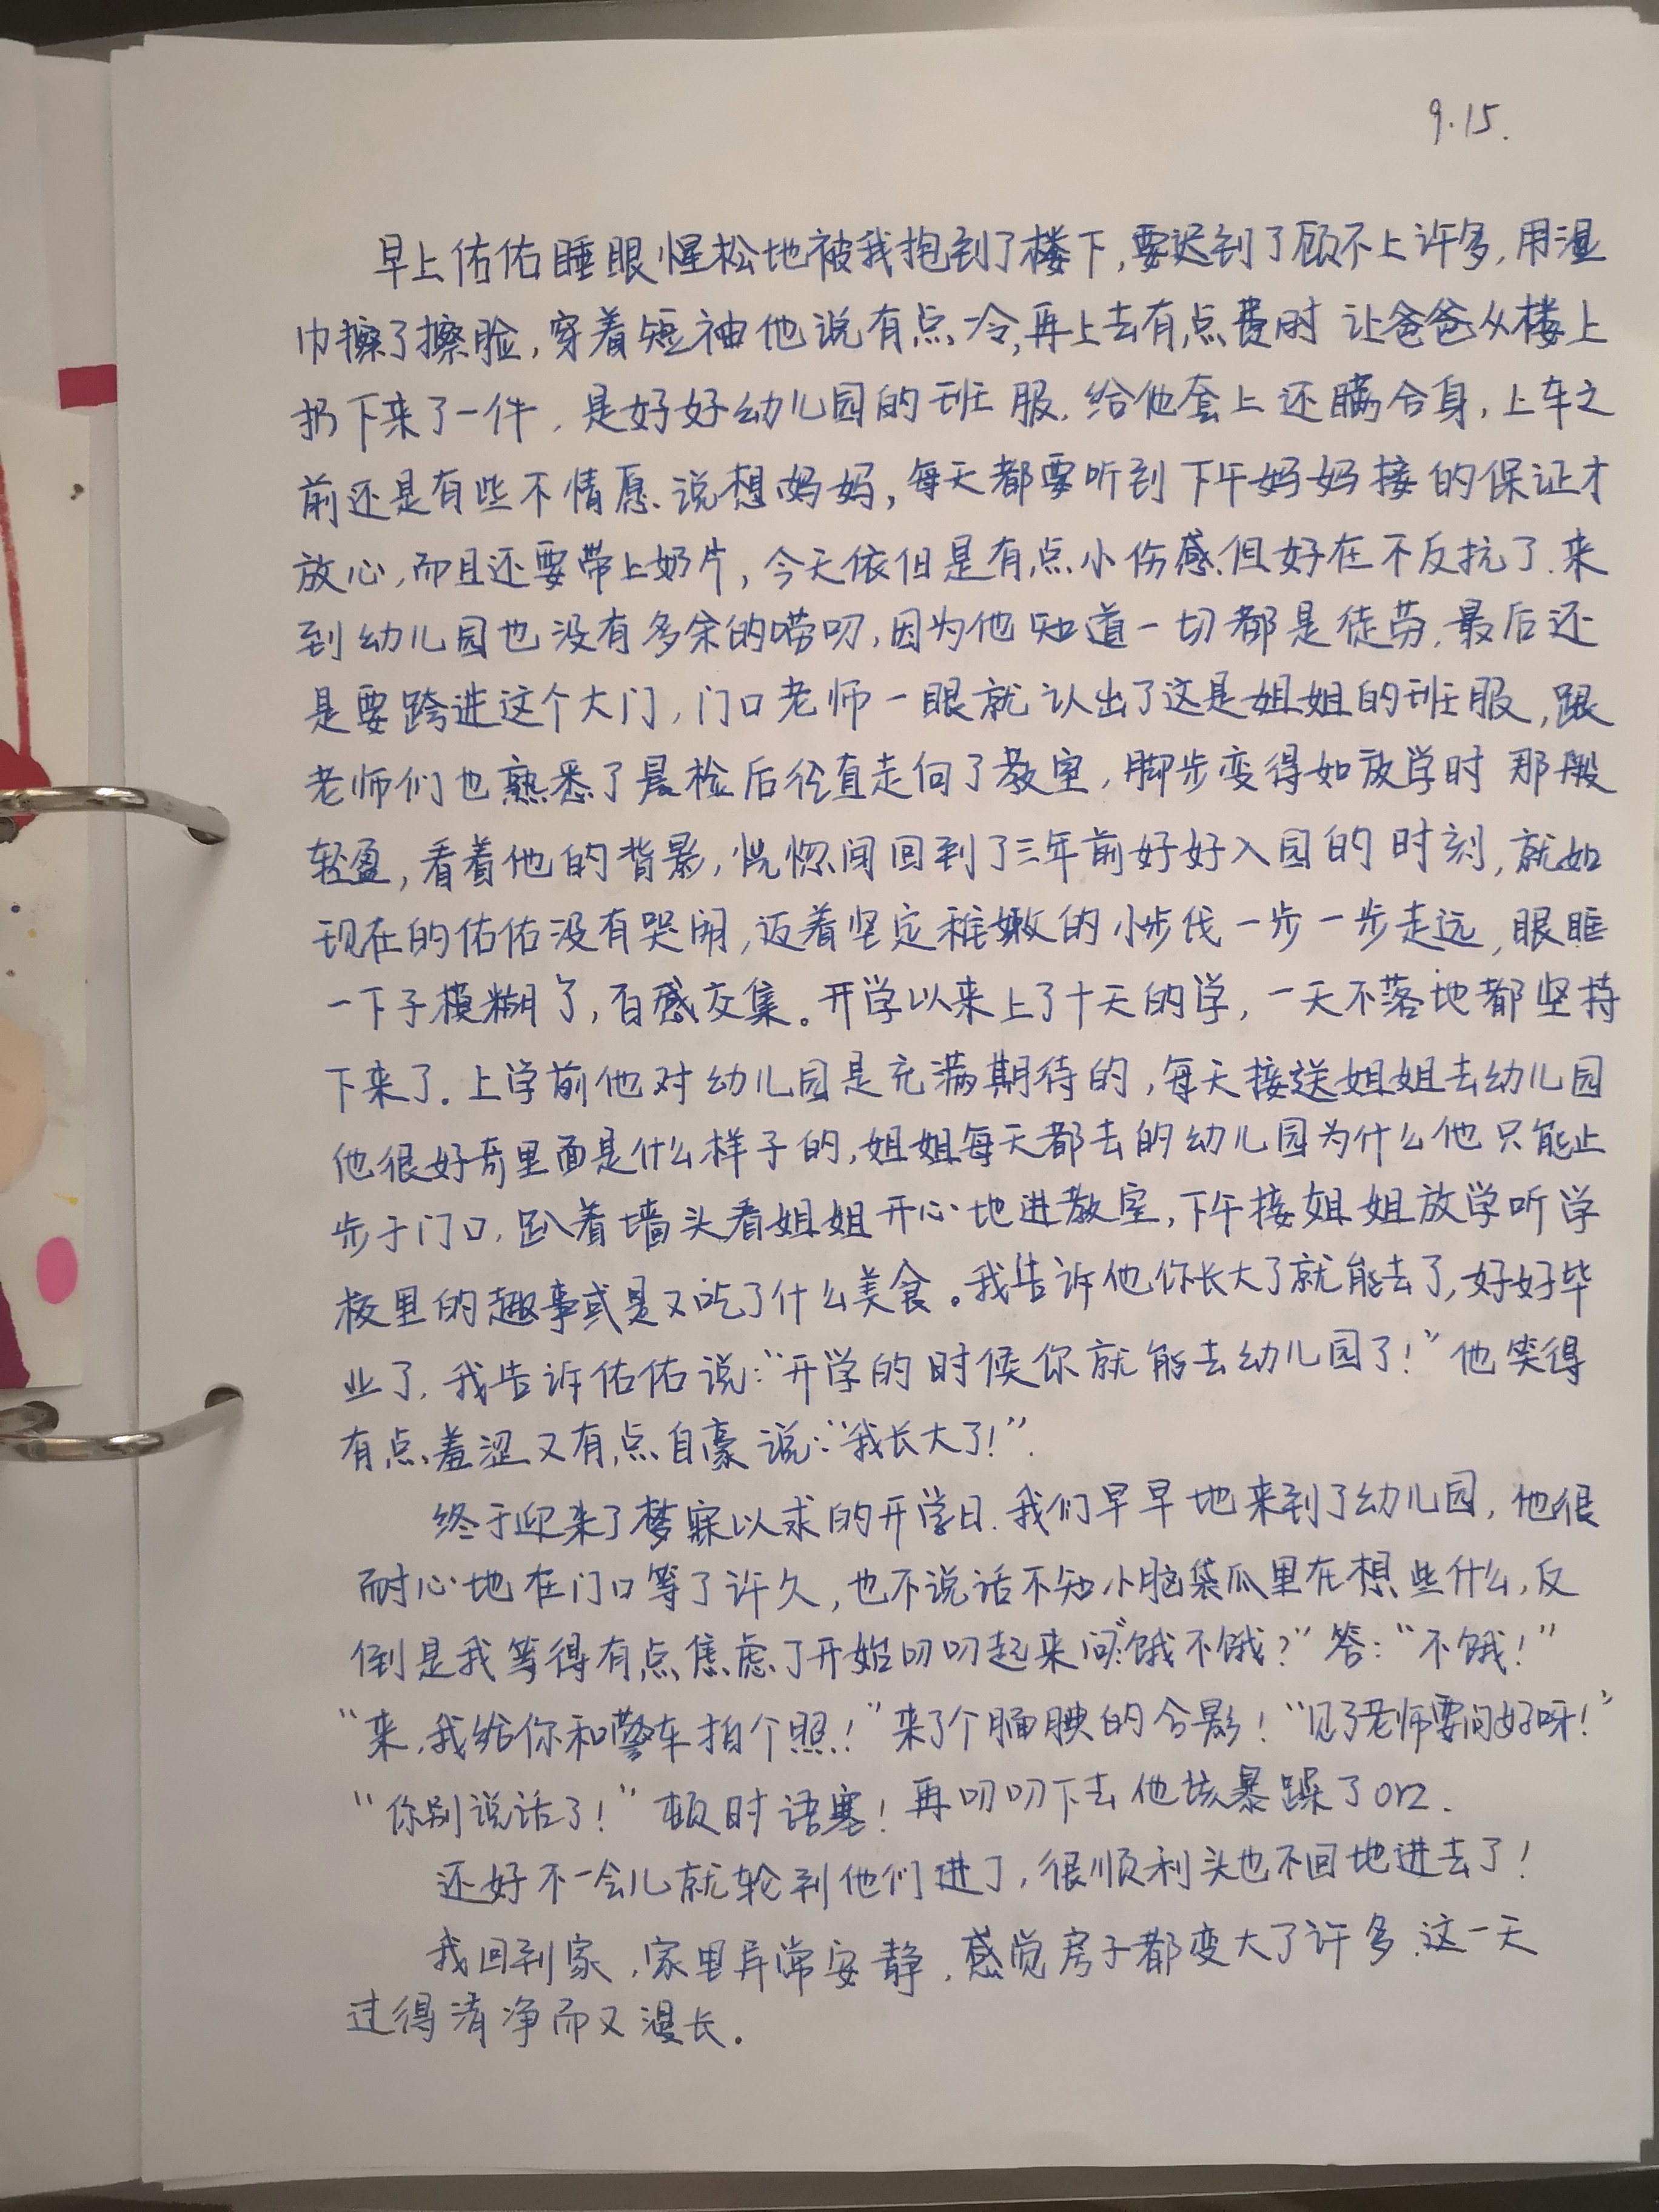 9.15.
早上佑佑睡眼惺松地被我抱到了楼下,要迟到了顾不上许多,用湿
巾擦了擦脸,穿着短袖他说有点冷,再上去有点费时 让爸爸从楼上
扔下来了一件,是好好幼儿园的班服.给他套上还瞒合身,上车之
前还是有些不情愿.说想妈妈,每天都要听到下午妈妈接的保证才
放心,而且还要带上奶片,今天依但是有点小伤感.但好在不反抗了.来
到幼儿园也没有多余的唠叨,因为他知道一切都是徒劳.最后还
是要跨进这个大门,门口老师一眼就认出了这是姐姐的班服,跟
老师们也熟悉了晨检后径直走向了教室,脚步变得如放学时那般
轻盈,看着他的背影,恍惚间回到了三年前好好入园的时刻,就如
现在的佑佑没有哭闹,迈着坚定稚嫩的小步伐一步一步走远,眼眶
一下子模糊了,百感交集。开学以来上了十天的学,一天不落地都坚持
下来了.上学前他对幼儿园是充满期待的,每天接送姐姐去幼儿园
他很好奇里面是什么样子的,姐姐每天都去的幼儿园为什么他只能止
步于门口,趴着墙头看姐姐开心地进教室,下午接姐姐放学听学
校里的趣事或是又吃了什么美食。我告诉他你长大了就能去了,好好毕
业了,我告诉佑佑说:“开学的时候你就能去幼儿园了!”他笑得
有点羞涩又有点自豪说:“我长大了!”.
终于迎来了梦寐以求的开学日.我们早早地来到了幼儿园,他很
耐心地在门口等了许久,也不说话不知小脑袋瓜里在想些什么,反
倒是我等得有点焦虑了开始叨叨起来问:“饿不饿?”答:“不饿!”
“来,我给你和警车拍个照!”来了个腼腆的合影!“见了老师要问好呀!”
“你别说话了!”顿时语塞!再叨叨下去他该暴躁了orz.
还好不一会儿就轮到他们进了,很顺利头也不回地进去了!
我回到家,家里异常安静,感觉房子都变大了许多.这一天
过得清净而又漫长。